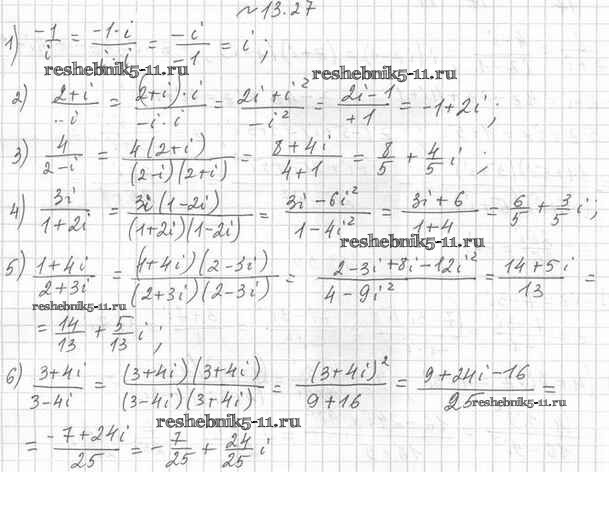 №13.27
1) -1/i = -1·i/i·i = -i/-1 = i;
reshebnik5-11.ru reshebnik5-11.ru
2) 2+i/-i = (2+i)·i/-i·i = 2i+i²/-i² = 2i-1/+1 = -1+2i;
3) 4/2-i = 4(2+i)/(2-i)(2+i) = 8+4i/4+1 = 8/5 + 4/5 i;
4) 3i/1+2i = 3i(1-2i)/(1+2i)(1-2i) = 3i-6i²/1-4i² = 3i+6/1+4 = 6/5 + 3/5 i;
reshebnik5-11.ru
5) 1+4i/2+3i = (1+4i)(2-3i)/(2+3i)(2-3i) = 2-3i+8i-12i²/4-9i² = 14+5i/13 =
reshebnik5-11.ru
= 14/13 + 5/13 i;
6) 3+4i/3-4i = (3+4i)(3+4i)/(3-4i)(3+4i) = (3+4i)²/9+16 = 9+24i-16/25 =
reshebnik5-11.ru
reshebnik5-11.ru
= -7+24i/25 = -7/25 + 24/25 i